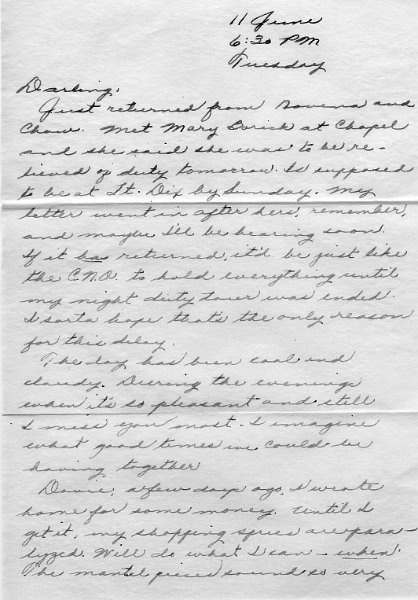 11 June
6:30 PM
Tuesday
Darling,
Just returned from Novena and
Chow. Met Mary Burick at Chapel
and she said she was to be re-
lieved of duty tomorrow. Is supposed
to be at Ft. Dix by Sunday. My
letter went in after hers, remember,
and maybe I'll be hearing soon.
If it has returned, it'd be just like
the C.N.O. to hold everything until
my night duty tour was ended.
I sorta hope that's the only reason
for this delay.
The day has been cool and
cloudy. During the evenings
when it's so pleasant and still
I miss you most. I imagine
what good times we could be
having together
Davie, a few days ago, I wrote
home for some money. Until I
get it, my shopping sprees are para-
lyzed. Will do what I can - when.
The mantel pieces sound so very